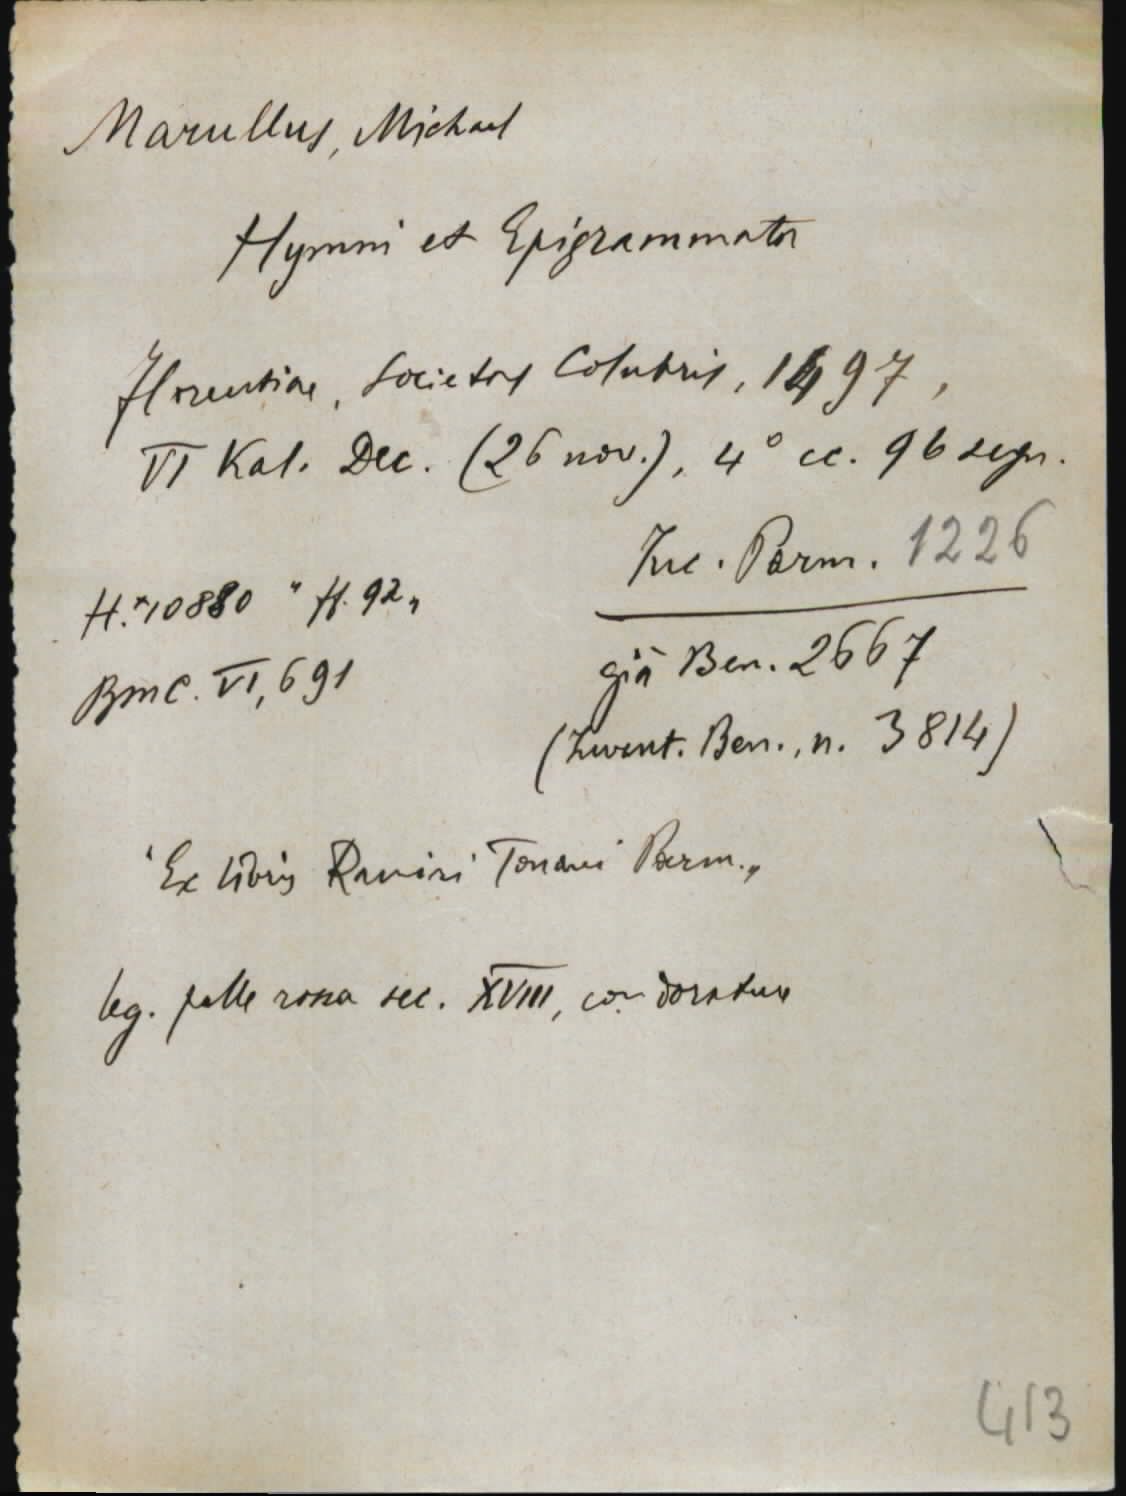 Marullus, Michael
Hymni et Epigrammata
Florentiae, Societas Colubris, 1497,
VI Kal. Dec. (26 nov.), 4° cc. 96 segn.
Inc. Parm. 1226
H.*10880 "H. 92"
già Ben. 2667
BMC. VI, 691
(Invent. Ben., n. 3814)
"Ex libris Raniri Tonani Parm."
leg. pelle rossa sec. XVIII, con dorature
413